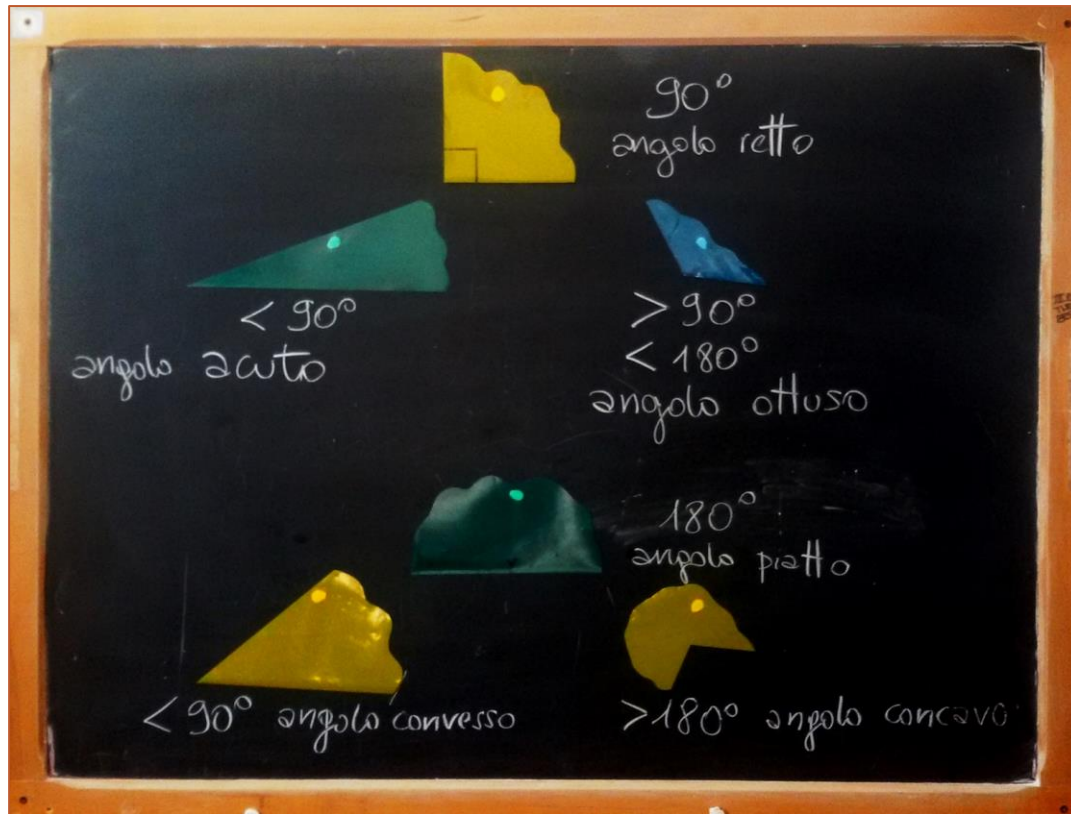 90°
angolo retto
< 90°
angolo acuto
> 90°
< 180°
angolo ottuso
180°
angolo piatto
< 90° angolo convesso
>180° angolo concavo